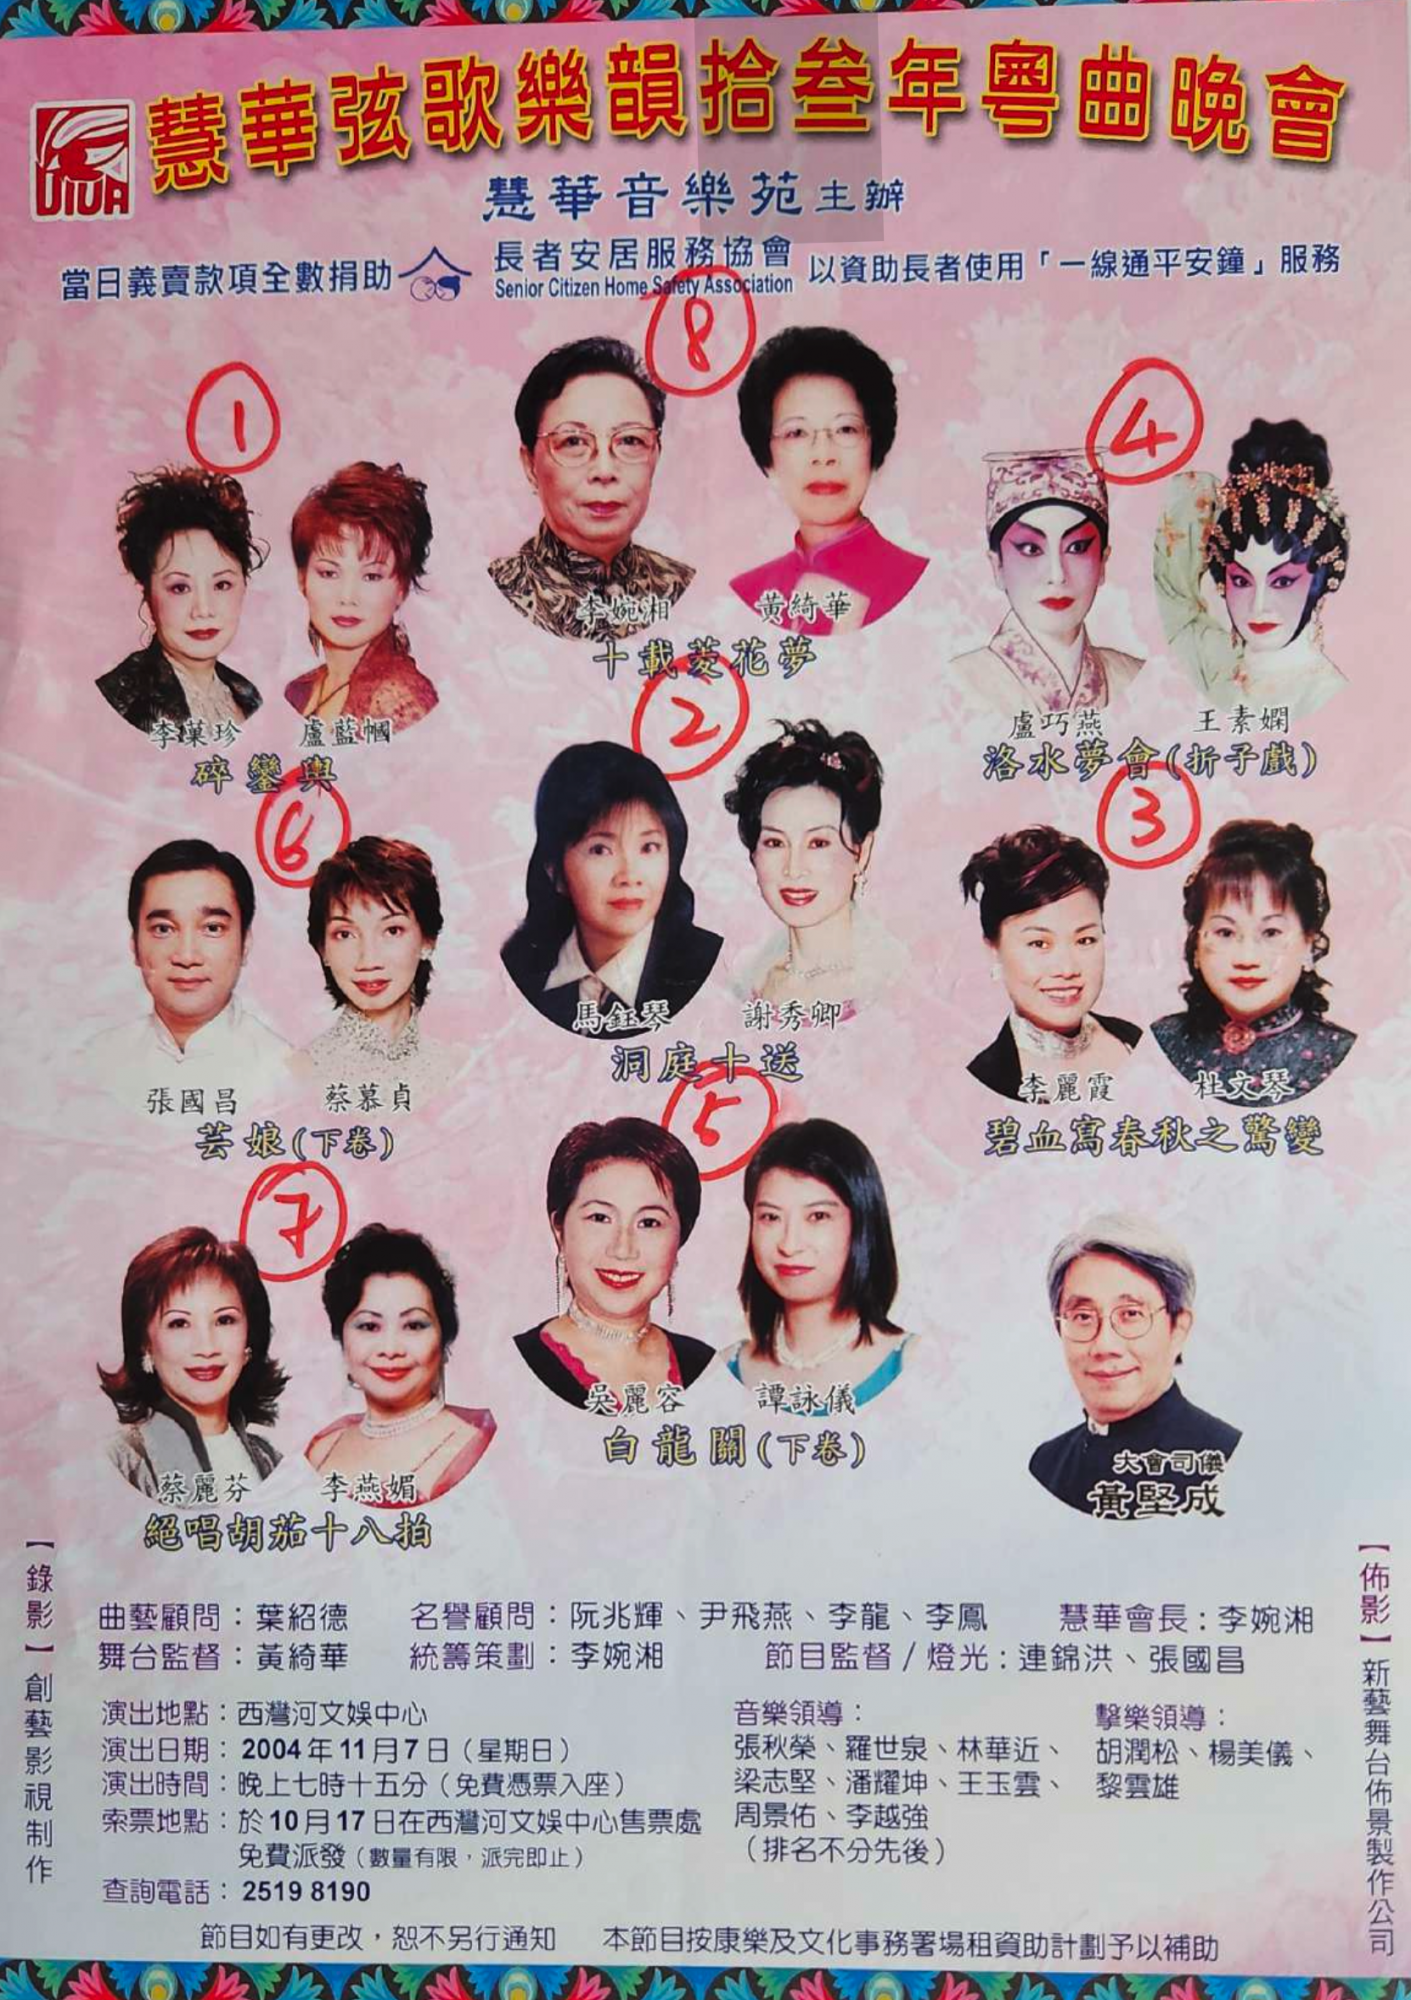 慧華弦歌樂韻拾叁年粵曲晚會
VIVA
慧華音樂苑主辦
當日義賣款項全數捐助 長者安居服務協會 以資助長者使用「一線通平安鐘」服務
Senior Citizen Home Safety Association
8
1
4
李婉湘 黃綺華
十載菱花夢
李菓珍 盧藍幗
碎鑾輿
盧巧燕 王素嫻
洛水夢會(折子戲)
2
6
3
馬鈺琴 謝秀卿
洞庭十送
張國昌 蔡慕貞
芸娘(下卷)
李麗霞 杜文琴
碧血寫春秋之驚變
5
7
吳麗容 譚詠儀
白龍關(下卷)
蔡麗芬 李燕媚
絕唱胡茄十八拍
大會司儀
黃堅成
【錄影】創藝影視制作
【佈影】新藝舞台佈景製作公司
曲藝顧問：葉紹德 名譽顧問：阮兆輝、尹飛燕、李龍、李鳳 慧華會長：李婉湘
舞台監督：黃綺華 統籌策劃：李婉湘 節目監督/燈光：連錦洪、張國昌
演出地點：西灣河文娛中心
演出日期：2004年11月7日（星期日）
演出時間：晚上七時十五分（免費憑票入座）
索票地點：於10月17日在西灣河文娛中心售票處
免費派發（數量有限，派完即止）
查詢電話：2519 8190
音樂領導：
張秋榮、羅世泉、林華近、
梁志堅、潘耀坤、王玉雲、
周景佑、李越強
（排名不分先後）
擊樂領導：
胡潤松、楊美儀、
黎雲雄
節目如有更改，恕不另行通知 本節目按康樂及文化事務署場租資助計劃予以補助